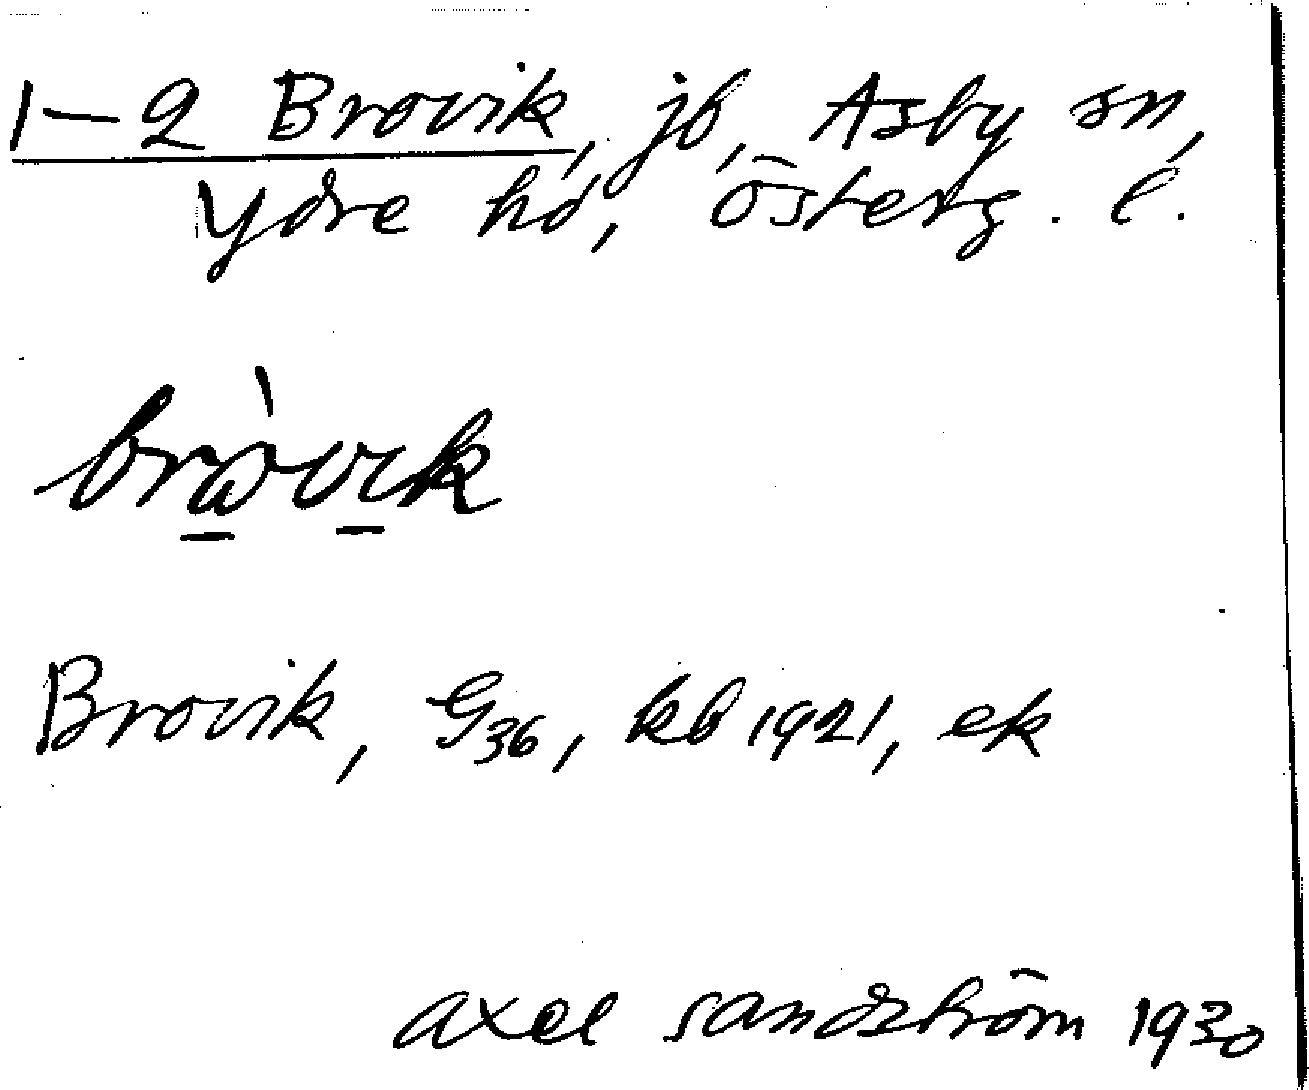 1–2 Brovik, jb, Asby sn,
Ydre hd, Österg. l.
brὼvιk
Brovik, G36, kb 1921, ek
axel sandström 1930